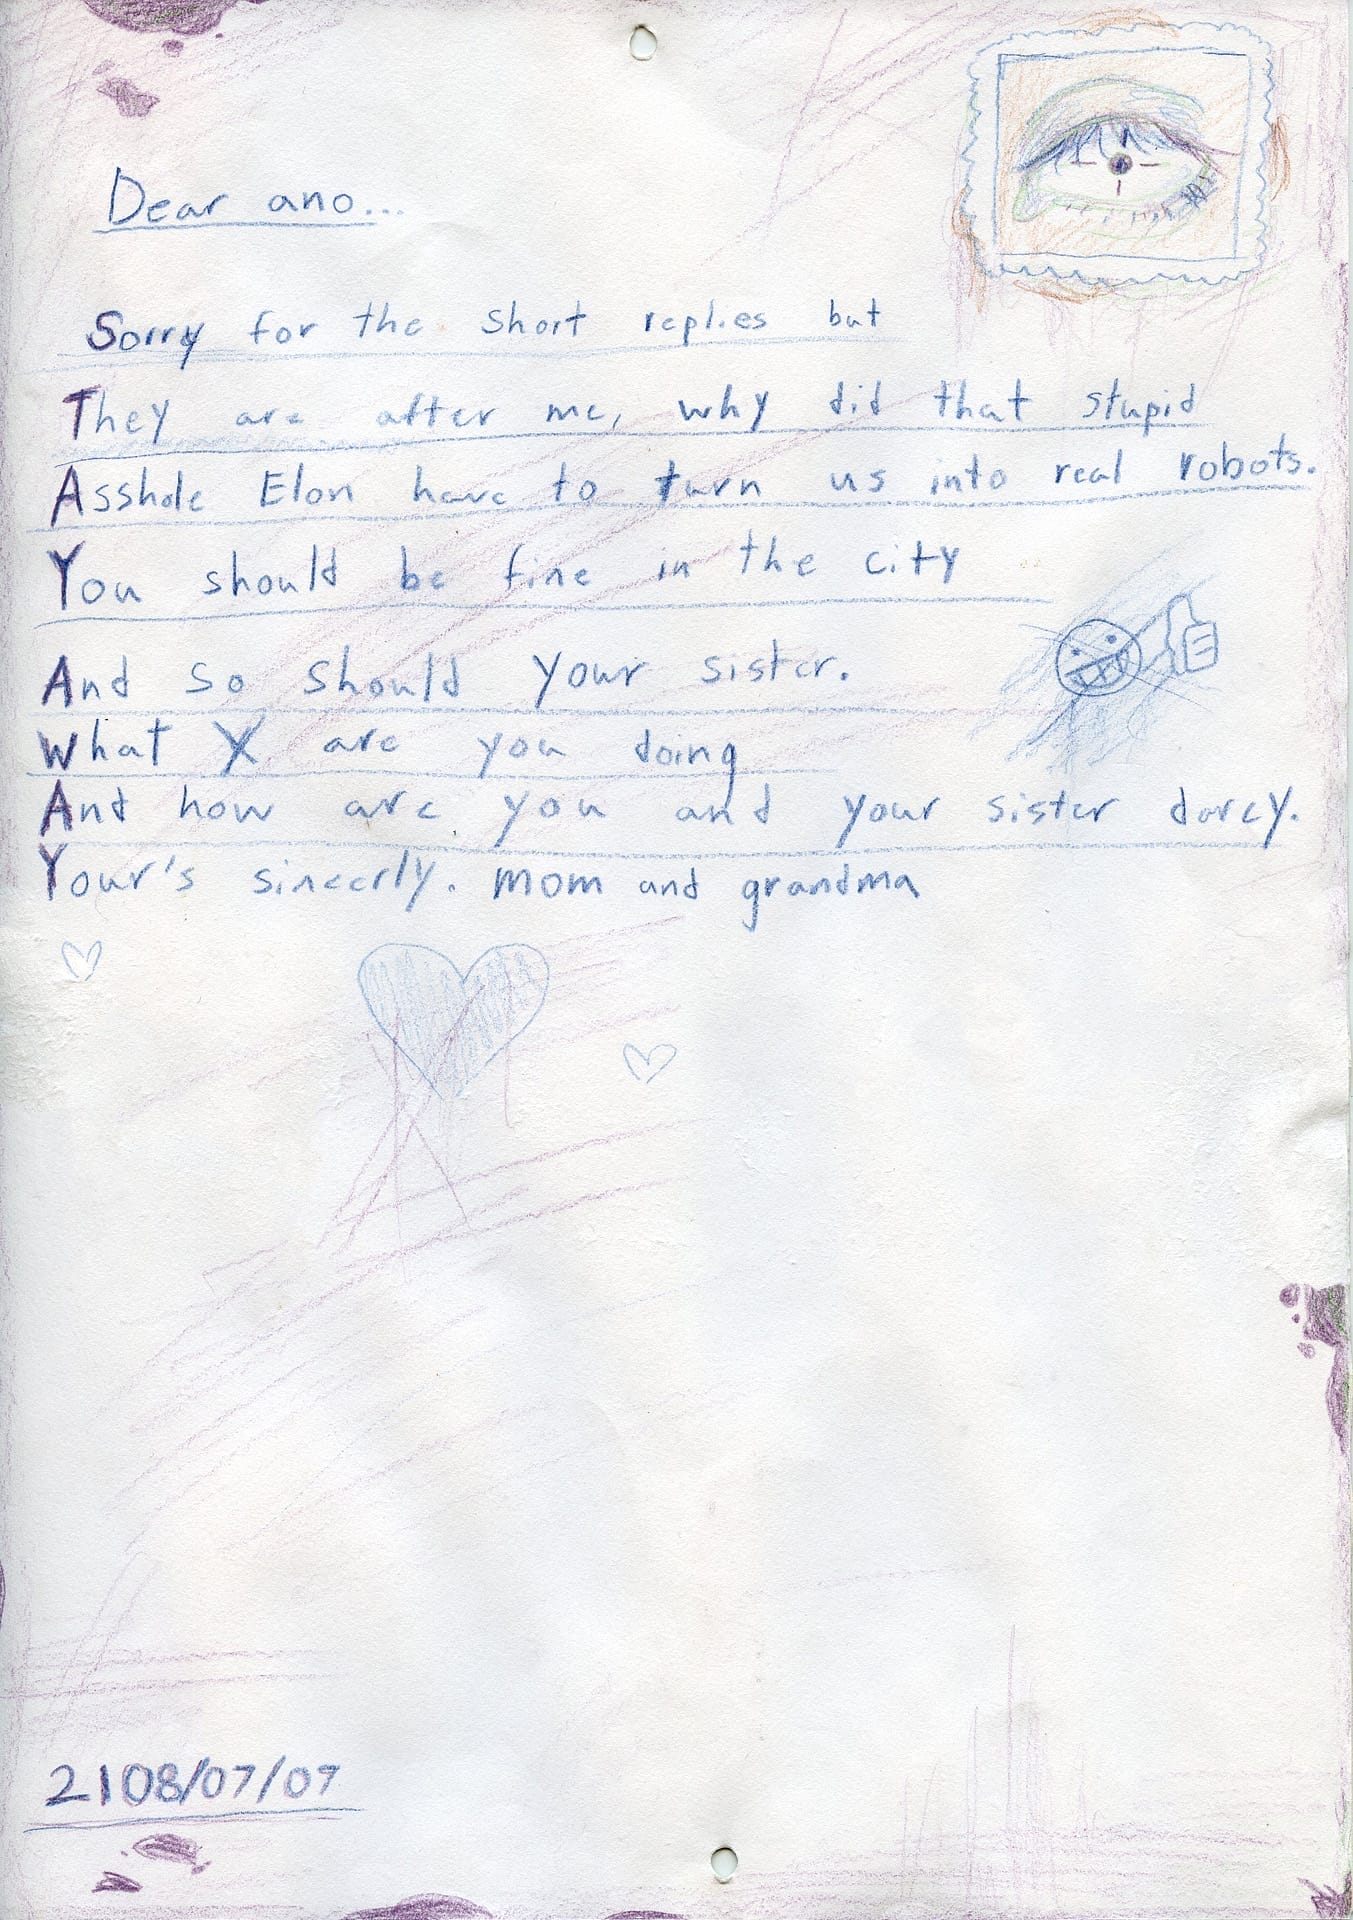 Dear ano...
Sorry for the short replies but
They are after me, why did that stupid
Asshole Elon have to turn us into real robots.
You should be fine in the city
And so should your sister.
What X are you doing
And how are you and your sister darcy.
Your's sincerly. mom and grandma
2108/07/07